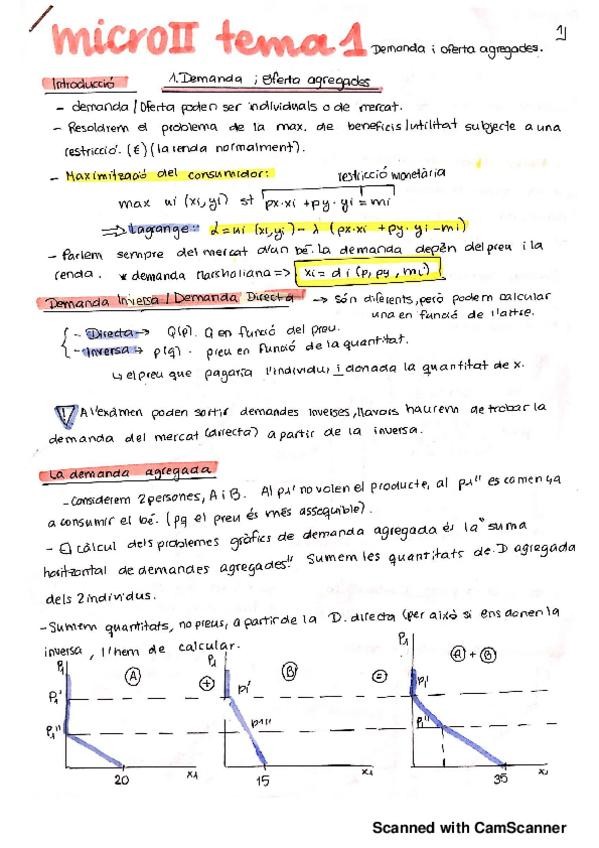 microII tema 1 Demanda i oferta agregades. 1
Introducció 1. Demanda i oferta agregades
- demanda/Oferta poden ser individuals o de mercat.
- Resoldrem el problema de la max. de beneficis/utilitat subjecte a una
restricció. (€) (la renda normalment).
- Maximització del consumidor: restricció monetària
max ui (xi,yi) st px·xi + py·yi = mi
⇒ Lagrange: L=ui (xi,yi) - λ (px·xi + py·yi - mi)
- Parlem sempre del mercat d'un bé. la demanda depèn del preu i la
renda. * demanda marshaliana => xi = di (p, py, mi)
Demanda Inversa / Demanda Directa → són diferents, però podem calcular
una en funció de l'altre.
- Directa → Q(p). Q en funció del preu.
- Inversa → p(q). preu en funció de la quantitat.
↳ el preu que pagaria l'individu i donada la quantitat de x.
! A l'exàmen poden sortir demandes inverses, llavors haurem de trobar la
demanda del mercat (directa) a partir de la inversa.
La demanda agregada
- Considerem 2 persones, A i B. Al p1' no volen el producte, al p1'' es comença
a consumir el bé. (pq el preu és més assequible).
- El càlcul dels problemes gràfics de demanda agregada és la "suma
horitzontal de demandes agregades". Sumem les quantitats de D agregada
dels 2 individus.
- Sumem quantitats, no preus, a partir de la D. directa (per això si ens donen la
inversa, l'hem de calcular.
P1 A + P1 B = P1 A + B
P1' p1' p1'
P1'' p1'' P1''
20 x1 15 x1 35 x1
Scanned with CamScanner